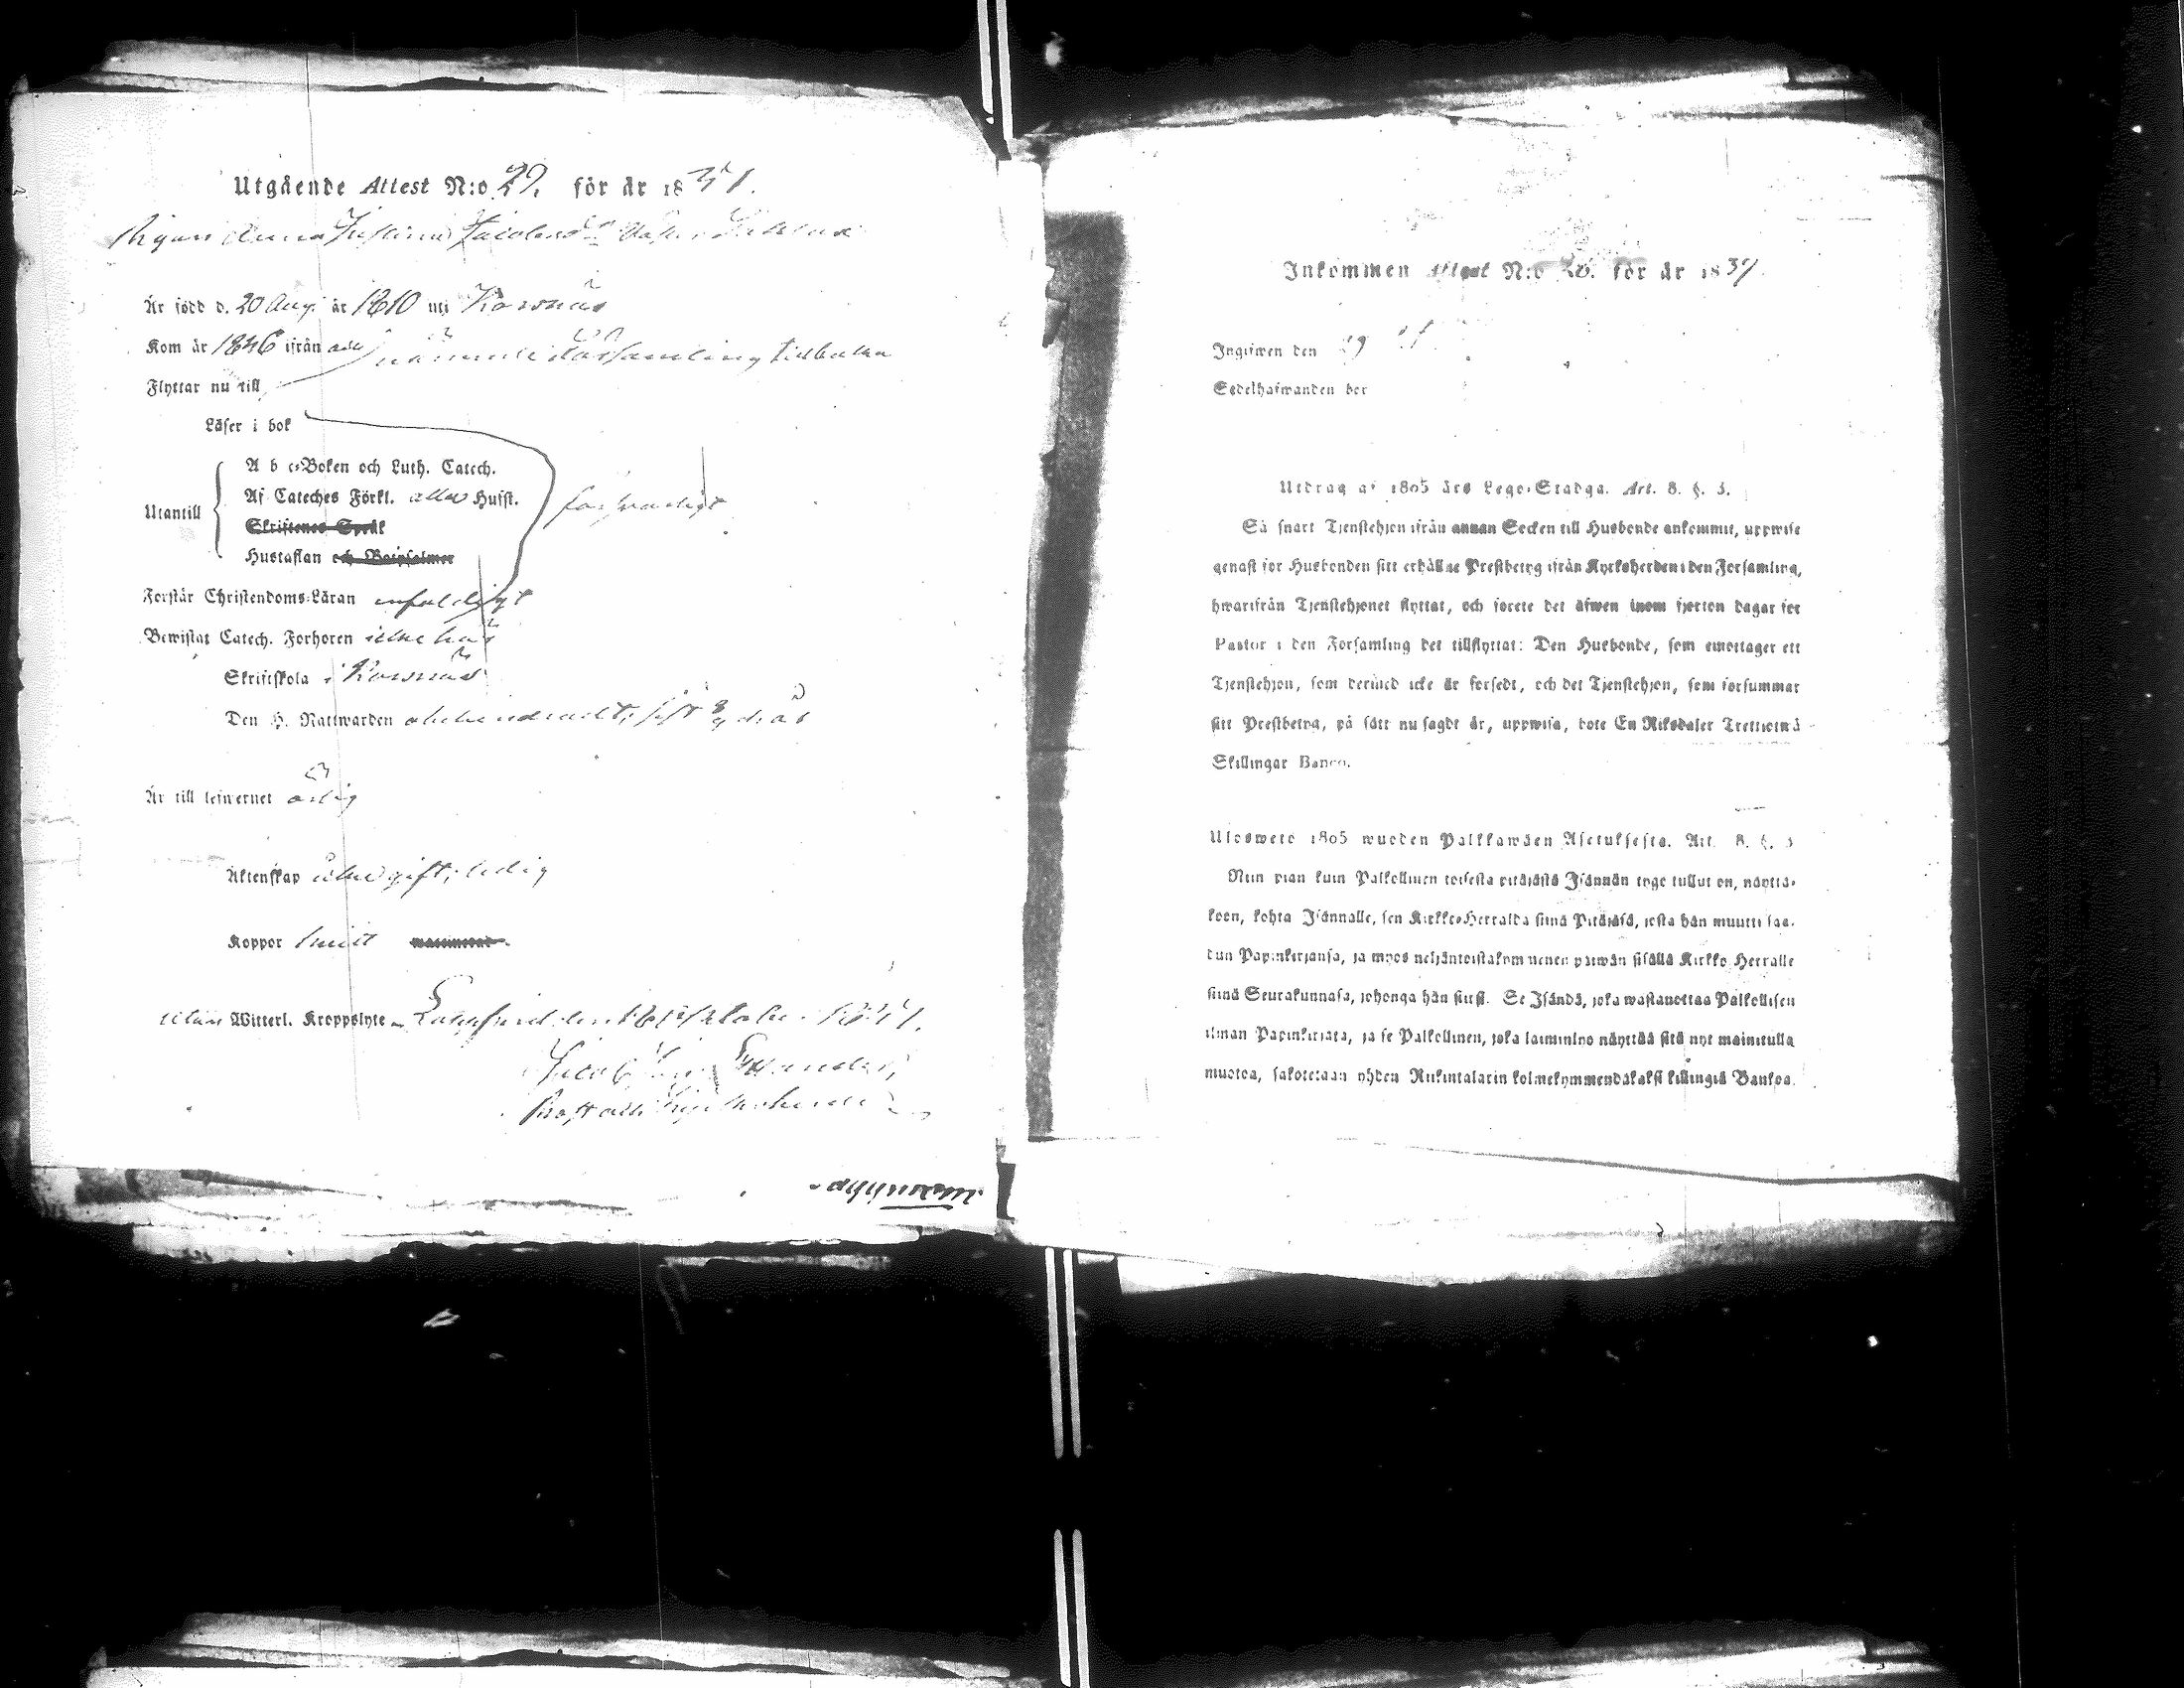 Utgående Attest N:o 29. för år 1837.
Pigan Anna Jacobsdr
Är född d. 20 Aug. år 1810 uti Korsnäs
Kom år 1836 ifrån församling tillbaka
Flyttar nu till
Läser i bok
A b c-Boken och Luth. Catech.
Af Cateches Förkl. Hufst.
Utantill
Skriftenes Språk
försvarligt
Hustaflan och Botpsalmer
Förstår Christendoms-Läran enfaldigt
Bewistat Catech. Förhören icke här
Skriftskola i Korsnäs
Den H. Nattwarden obehindradt, sist
Är till lefwernet ärlig
Äktenskap icke gift, ledig
Koppor haft
utan Witterl. Kroppslyte - Lappfjerd den October 1837.
Jacob
Prost och Kyrkoherde
Inkommen Attest N:o för år 1837
Ingifwen den 29
Sedelhafwanden bor
Utdrag af 1805 års Lego-Stadga. Art. 8. §. 3.
Så snart Tjenstehjon ifrån annan Socken till Husbonde ankommit, uppwise
genast för Husbonden sitt erhållne Prestbetyg ifrån Kyrkoherden i den Församling,
hwarifrån Tjenstehjonet flyttat, och förete det äfwen inom fjorton dagar för
Pastor i den Församling det tillflyttat: Den Husbonde, som emottager ett
Tjenstehjon, som dermed icke är försedt, och det Tjenstehjon, som försummar
sitt Prestbetyg, på sätt nu sagdt är, uppwisa, bote En Riksdaler Trettiotwå
Skillingar Banco.
Ulosweto 1805 wuoden Palkkawäen Asetuksesta. Art. 8. §. 3
Niin pian kuin Palkollinen toisesta pitäjästä Isännän tygö tullut on, näyttä-
köön, kohta Isännälle, sen Kirkko-Herralda siinä Pitäjäsä, josta hän muutti saa-
dun Papinkirjansa, ja myös neljäntoistakymmenen päiwän sisällä Kirkko Herralle
siinä Seurakunnasa, johonga hän siirsi. Se Isändä, joka wastanottaa Palkollisen
ilman Papinkirjata, ja se Palkollinen, joka laiminlyö näyttää sitä nyt mainitulla
muotoa, sakotetaan yhden Riikintalarin kolmekymmendäkaksi killingiä Bankoa.